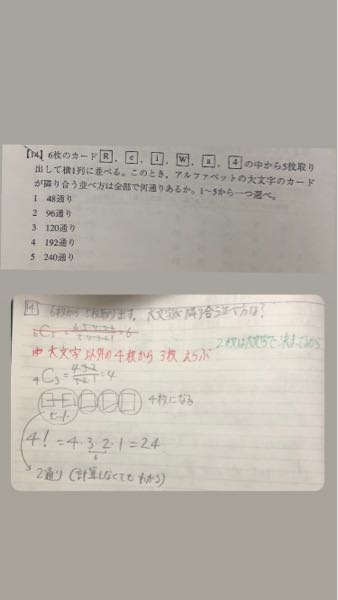 【14】 6枚のカード R , c , i , W , a , 4 の中から5枚取り
出して横1列に並べる。このとき、アルファベットの大文字のカード
が隣り合う並べ方は全部で何通りあるか。1〜5から一つ選べ。
1 48通り
2 96通り
3 120通り
4 192通り
5 240通り
14 6枚から5枚取り出す。大文字が隣り合う並べ方は?
₆C₅ = =6
2枚は大文字で決まってるから
大文字以外の4枚から3枚えらぶ
₄C₃ = 4・3・2 / 3・2・1 = 4
4枚になる
セット
4! = 4・3・2・1 = 24
6
2通り (計算しなくてもわかる)